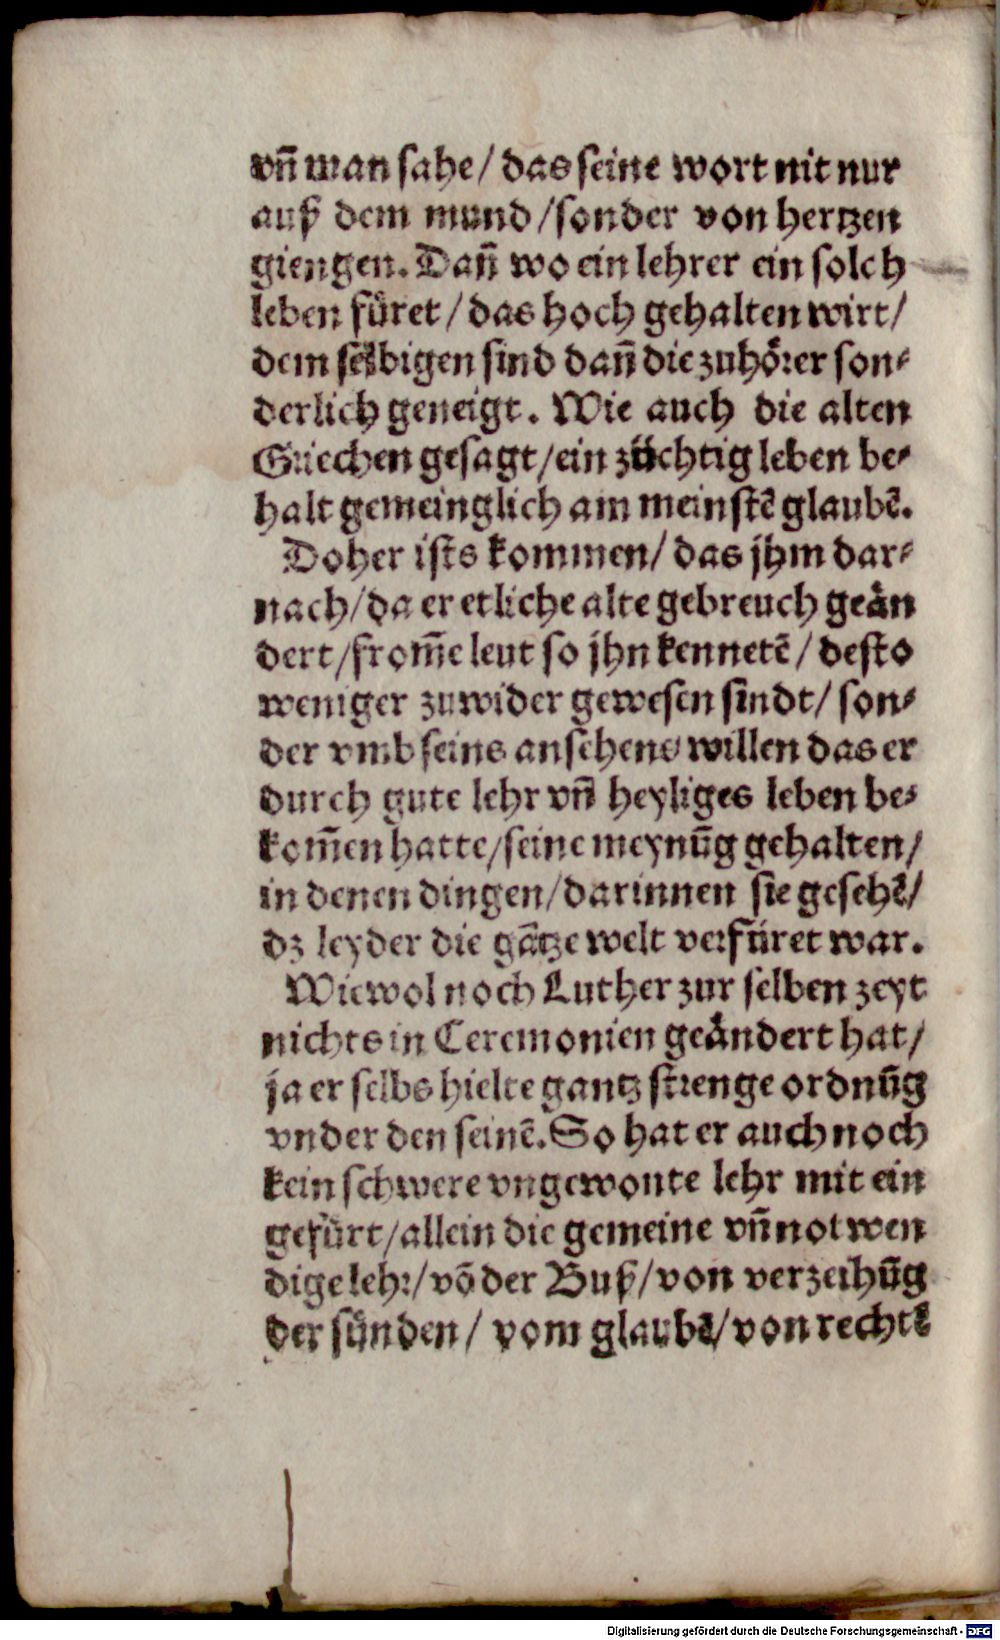 vñ man sahe/ das seine wort nit nur
auß dem mund/ sonder von hertzen
giengen. Dañ wo ein lehrer ein solch
leben füret/ das hoch gehalten wirt/
dem selbigen sind dañ die zuhörer son⸗
derlich geneigt. Wie auch die alten
Griechen gesagt/ ein züchtig leben be⸗
halt gemeinglich am meinstẽ glaubẽ.
Doher ists kommen/ das jhm dar⸗
nach/ da er etliche alte gebreuch geän
dert/ from̃e leut so jhn kennetẽ/ desto
weniger zuwider gewesen sindt/ son⸗
der vmb seins ansehens willen das er
durch gute lehr vñ heyliges leben be⸗
kom̃en hatte/ seine meynũg gehalten/
in denen dingen/ darinnen sie gesehẽ/
dz leyder die gãtze welt verfüret war.
Wiewol noch Luther zur selben zeyt
nichts in Ceremonien geändert hat/
ja er selbs hielte gantz strenge ordnũg
vnder den seinẽ. So hat er auch noch
kein schwere vngewonte lehr mit ein
gefürt/ allein die gemeine vñ notwen
dige lehr/ võ der Buß/ von verzeihũg
der sünden/ vom glaubẽ/ von rechtẽ
Digitalisierung gefördert durch die Deutsche Forschungsgemeinschaft - DFG